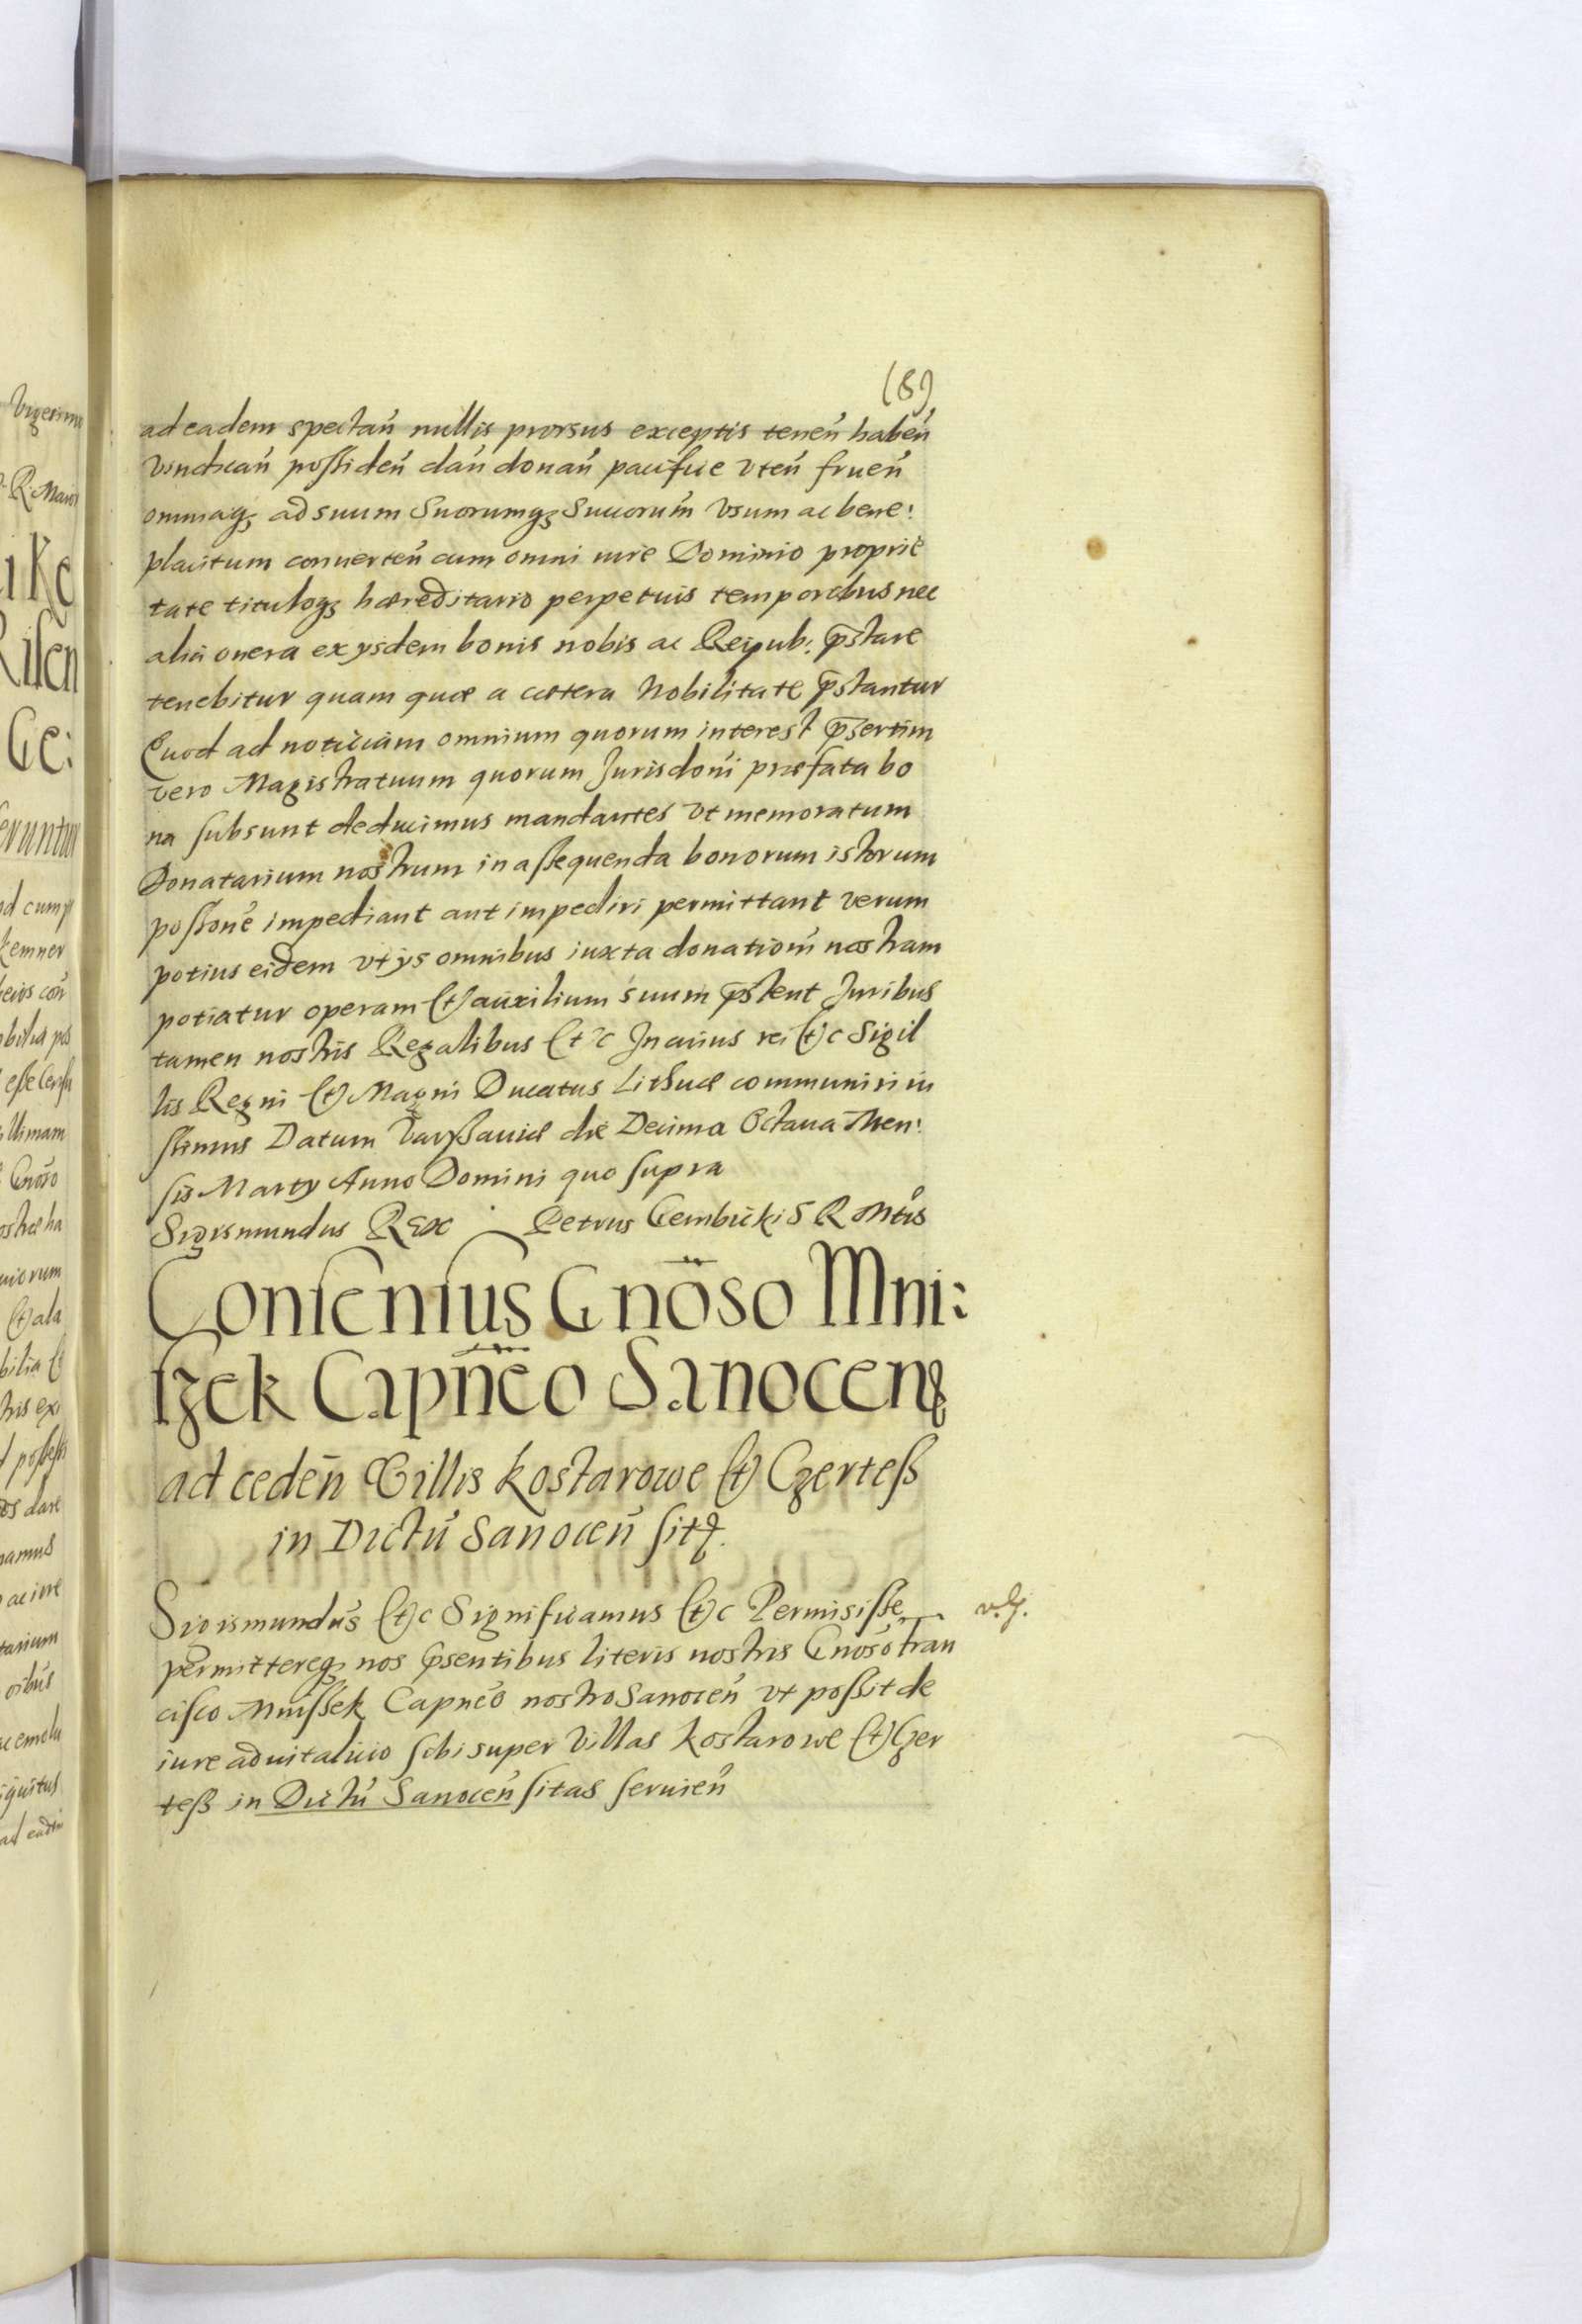 (8)
ad eadem spectañ nullis prorsus exceptis teneñ habeñ
vendicañ possideñ dañ donañ pacifice vteñ frueñ
omniaq₃ ad suum Suorumq₃ Succorum̃ vsum ac bene:
placitum conuerteñ cum omni iure Dominio proprie
tate tituloq₃ hæreditario perpetuis temporibus nec
alia onera ex ysdem bonis nobis ac Reipub: p̄stare
tenebitur quam quæ a cætera Nobilitate p̄stantur
Quod ad noticiam omnium quorum interest p̄sertim
vero Magistratuum quorum Jurisdoni præfata bo
na subsunt deducimus mandantes vt memoratum
Donatarium nostrum in assequenda bonorum istorum
possone impediant aut impediri permittant verum
potius eidem vt ys omnibus iuxta donationi nostram
potiatur operam et auxilium suum p̄stent Juribus
tamen nostris Regalibus etc Jn cuius rei etc Sigil
lis Regni et Magni Ducatus Lithuæ communiri iu
ssimus Datum Varßauiæ die Decima Octaua Men:
sis Marty Anno Domini quo supra
Sigismundus Rex Petrus Gembicki S R Mtis
Consensus Gnoso Mni:
szek Capneo Sanocen
ad cedeñ Villis Kostarowe et Czerteß
in Dictu Sanoceñ sit
Sigismundus etc Significamus etc Permisisse
permittereq₃ nos p̄sentibus literis nostris Gnoso Fran
cisco Mnissek Capneo nostro Sanoceñ vt possit de
iure aduitalicio sibi super Villas Kostarowe et Czer
teß in Dictu Sanoceñ sitas seruieñ